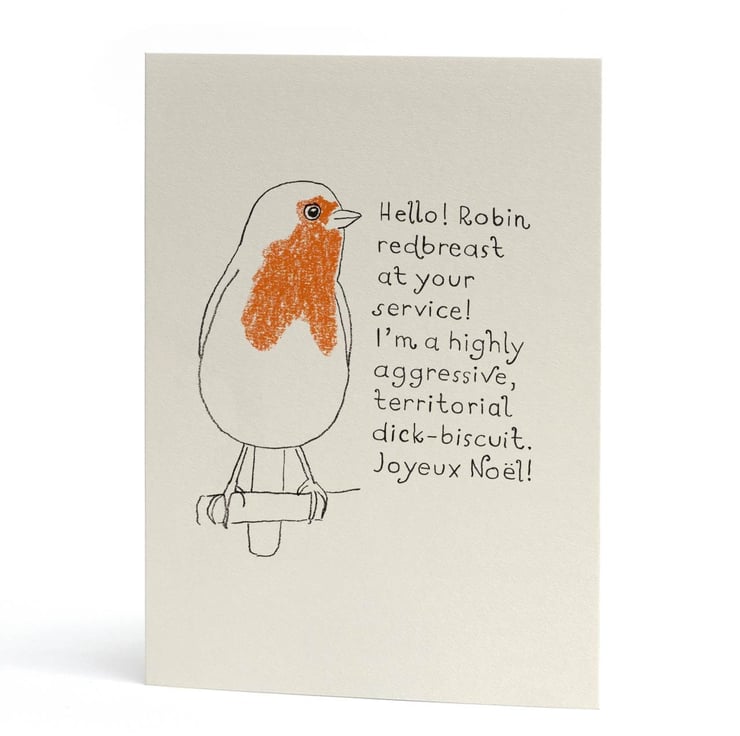 Hello! Robin
redbreast
at your
service!
I'm a highly
aggressive,
territorial
dick-biscuit.
Joyeux Noël!